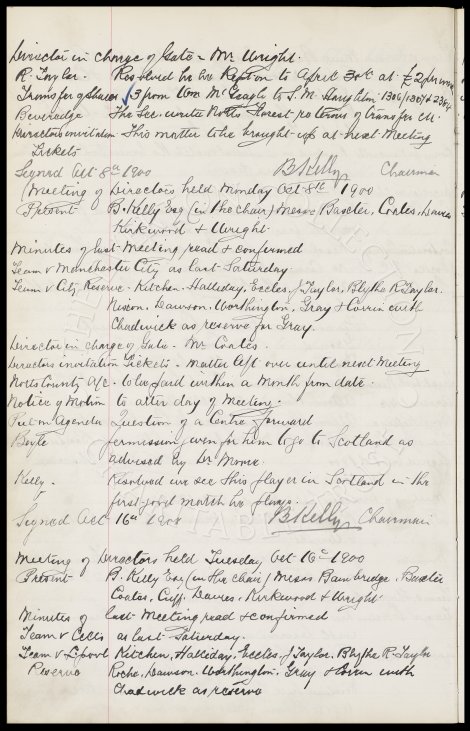 Director in charge of Gate - Mr Wright.
R. Taylor. Resolved he be kept on to April 30th at £2 per week
Transfer of Shares 3 from Wm McTeagle to S.M. Haughton 1306/1307 & 2384
Beveredge The Sec. write Notts Forest re terms of transfer &c.
Directors invitation This matter to be brought up at next Meeting
Tickets
Signed Oct 8th 1900 B Kelly Chairman
Meeting of Directors held Monday Oct 8th 1900
Present B. Kelly Esq (in the chair) Messrs Baxter, Coates, Davies
Kirkwood & Wright
Minutes of last Meeting read & confirmed
Team v Manchester City as last Saturday
Team v City Reserve - Kitchen, Halliday, Eccles, J Taylor, Blythe R. Taylor.
Nixon, Dawson, Worthington, Gray & Corrin with
Chadwick as reserve for Gray.
Director in charge of Gate - Mr Coates.
Directors invitation Tickets - Matter left over until next Meeting
Notts County A/c. to be paid within a month from date.
Notice of Motion to alter day of Meeting.
Put on Agenda Question of a Centre Forward
Boyle permission given for him to go to Scotland as
advised by Dr Moore.
Kelly. Resolved we see this player in Scotland in the
first good match he plays.
Signed Oct 16th 1900 B Kelly Chairman
Meeting of Directors held Tuesday Oct 16th 1900
Present B. Kelly Esq (in the chair) Messrs Bainbridge, Baxter
Coates, Cuff, Davies, Kirkwood & Wright.
Minutes of last Meeting read & confirmed
Team v as last Saturday.
Team v L'pool Kitchen, Halliday, Eccles, J Taylor, Blythe R Taylor
Reserve Roche, Dawson, Worthington, Gray & Corrin with
Chadwick as reserve